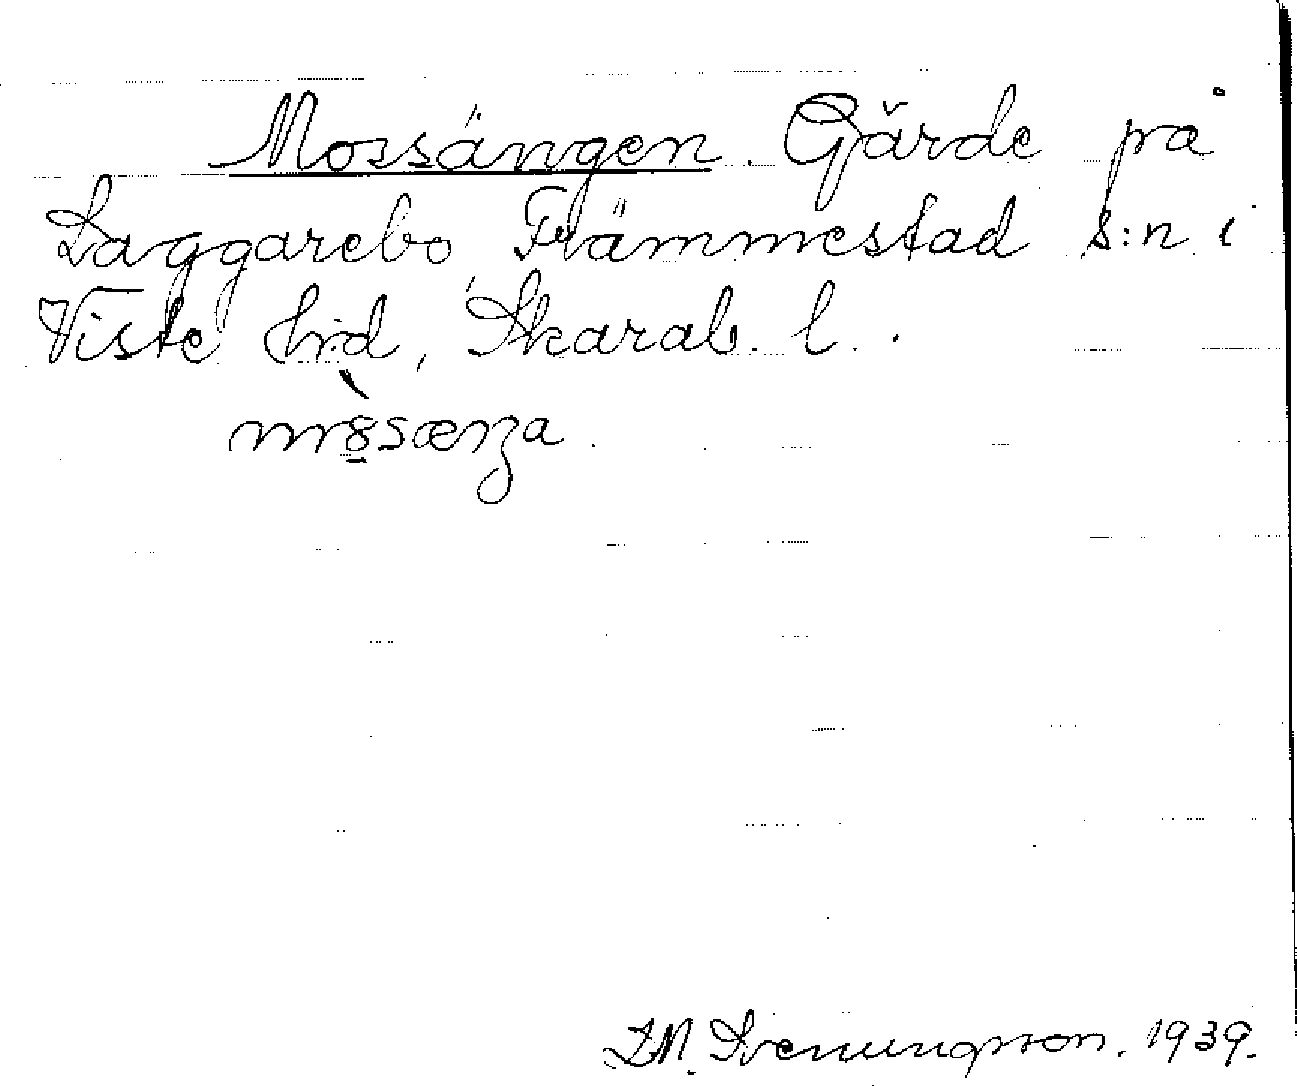 Mossängen. Gärde på
Laggarebo, Främmestad s:n i
Viste hrd, Skarab. l.
Svenungsson. 1939.